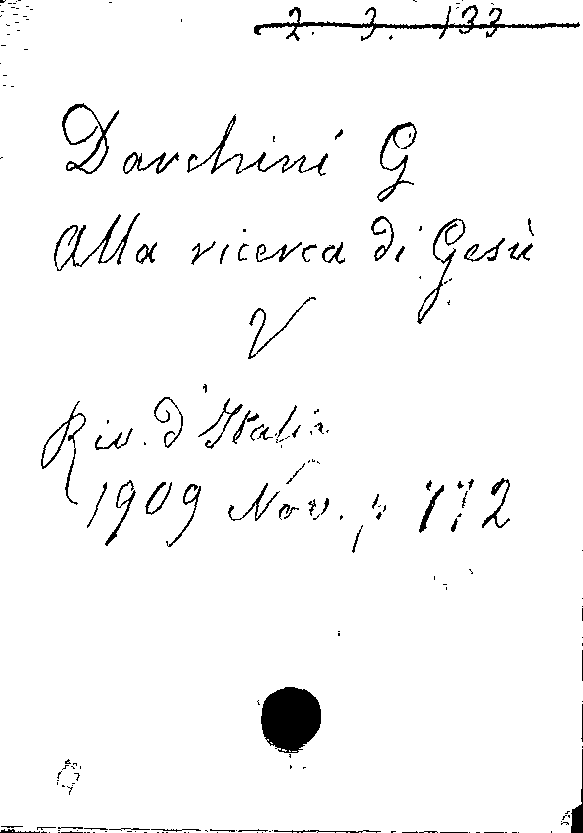 2. 3. 133
Darchini G
Alla ricerca di Gesù
V
Riv. d'Italia
1909 Nov. p. 772